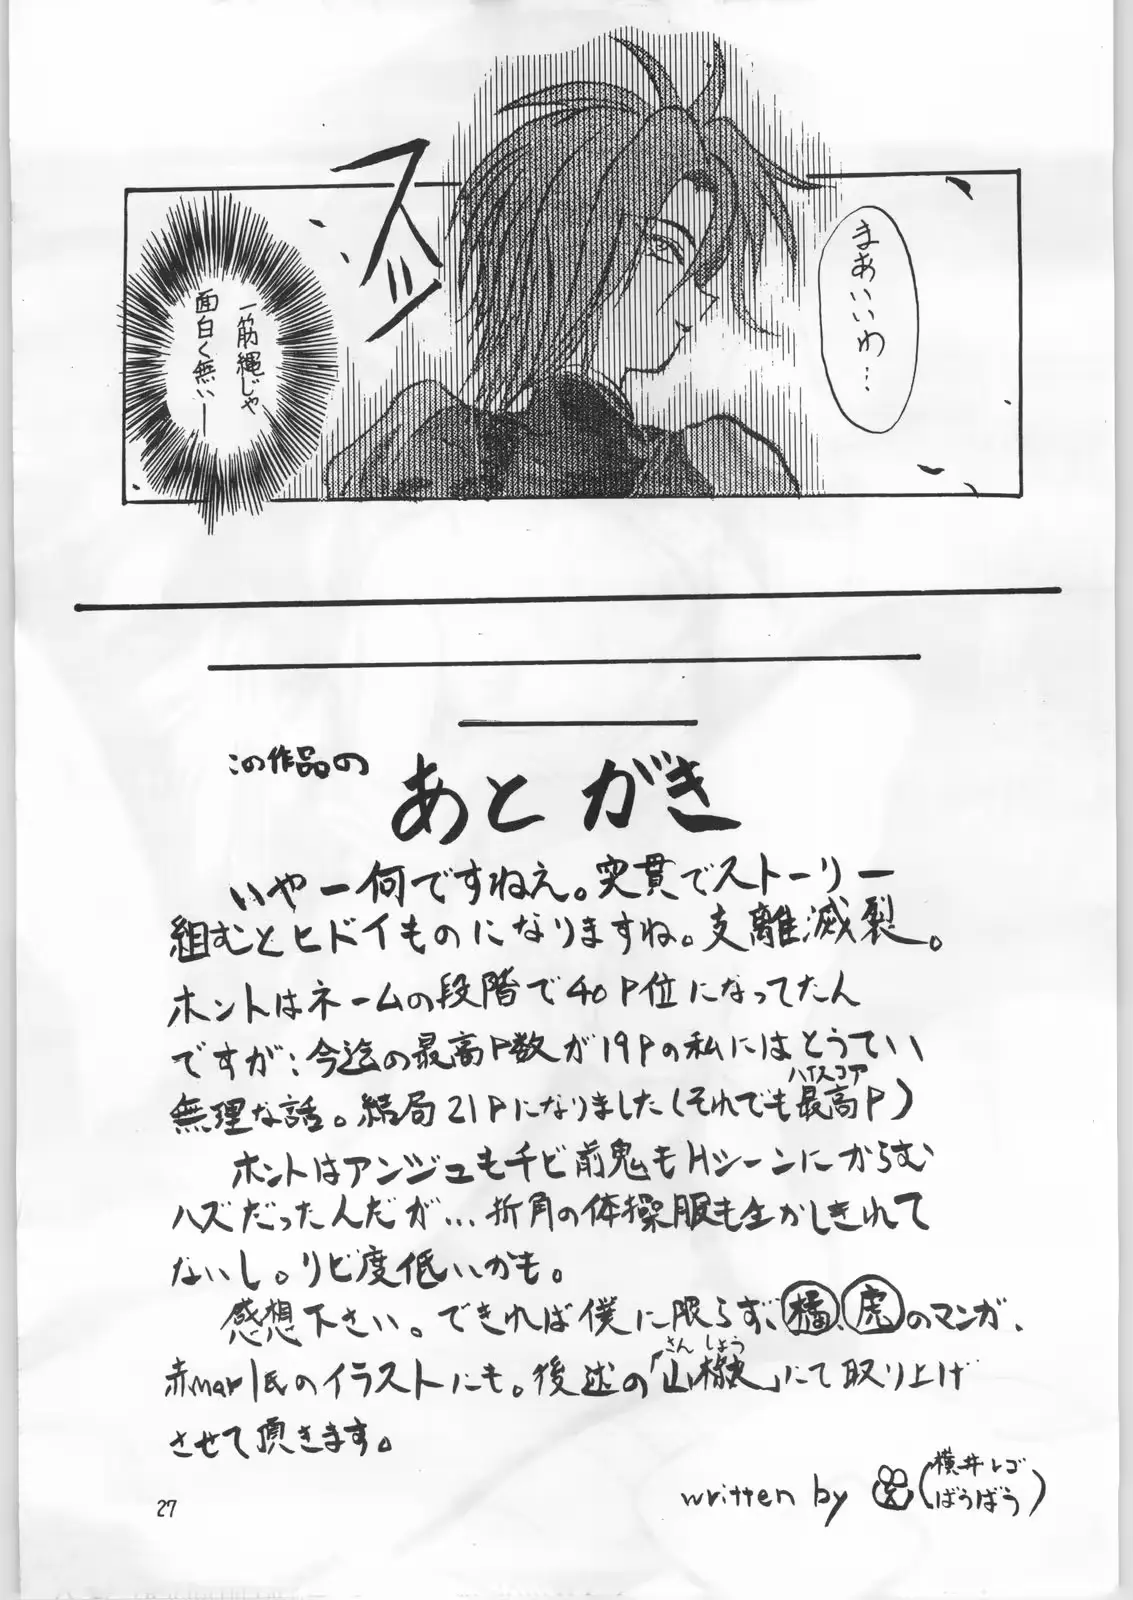 まあいいわ…
スッ
一筋縄じゃ
面白く無い―
この作品の
あとがき
いやー何ですねえ。突貫でストーリー
組むとヒドイものになりますね。支離滅裂。
ホントはネームの段階で40P位になってたん
ですが…今迄の最高P数が19Pの私にはとうてい
無理な話。結局21Pになりました(それでも最高P)
ハイスコア
ホントはアンジュも千ビ前鬼もHシーンにからむ
ハズだったんだが…折角の体操服も生かしきれて
ないし。リピ度低いかも。
感想下さい。できれば僕に限らず、橘、虎のマンガ、
赤mar氏のイラストにも。後述の「山椒」にて取り上げ
さんしょう
させて頂きます。
written by (横井レゴ
ばうばう)
27